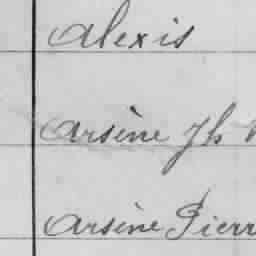 Alexis
Arsène Jh
Arsène Pierr